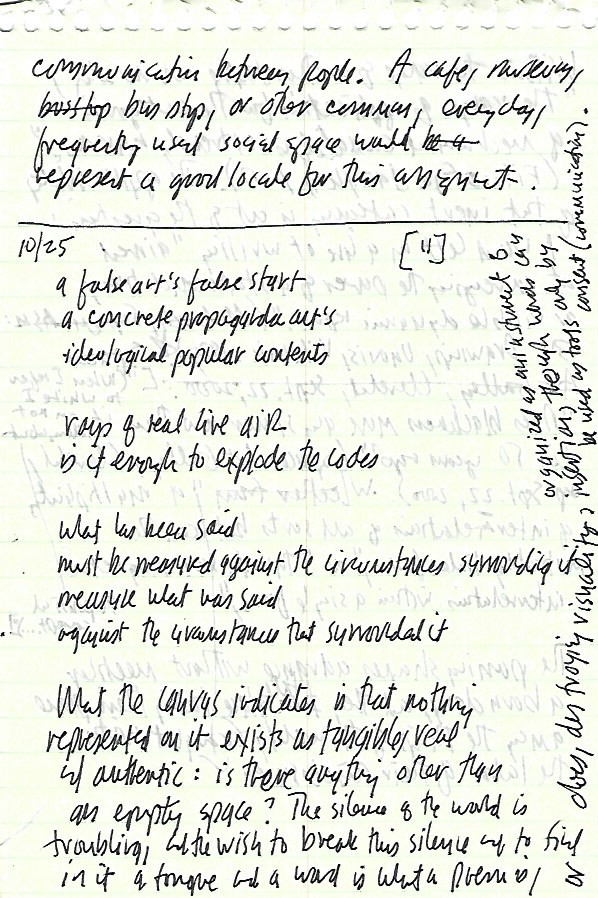 communication between people. A cafe, nursery,
bus stop, or other common, everyday,
frequently used social space would be a
represent a good locale for this assignment.
10/25
[4]
a false art's false start
a concrete propaganda art's
ideological popular contents
rays of real live aiR
is it enough to explode the codes
what has been said
must be measured against the circumstances surrounding it
measure what was said
against the circumstances that surrounded it
What the canvas indicates is that nothing
represented on it exists as tangibly real
and authentic: is there anything other than
an empty space? The silence of the world is
troubling, and the wish to break this silence and to find
in it a tongue and a word is what a poem is,
or does, destroying visuality's insertion
organized as an instrument &
through words can
only by
be used as tools consent (communication).